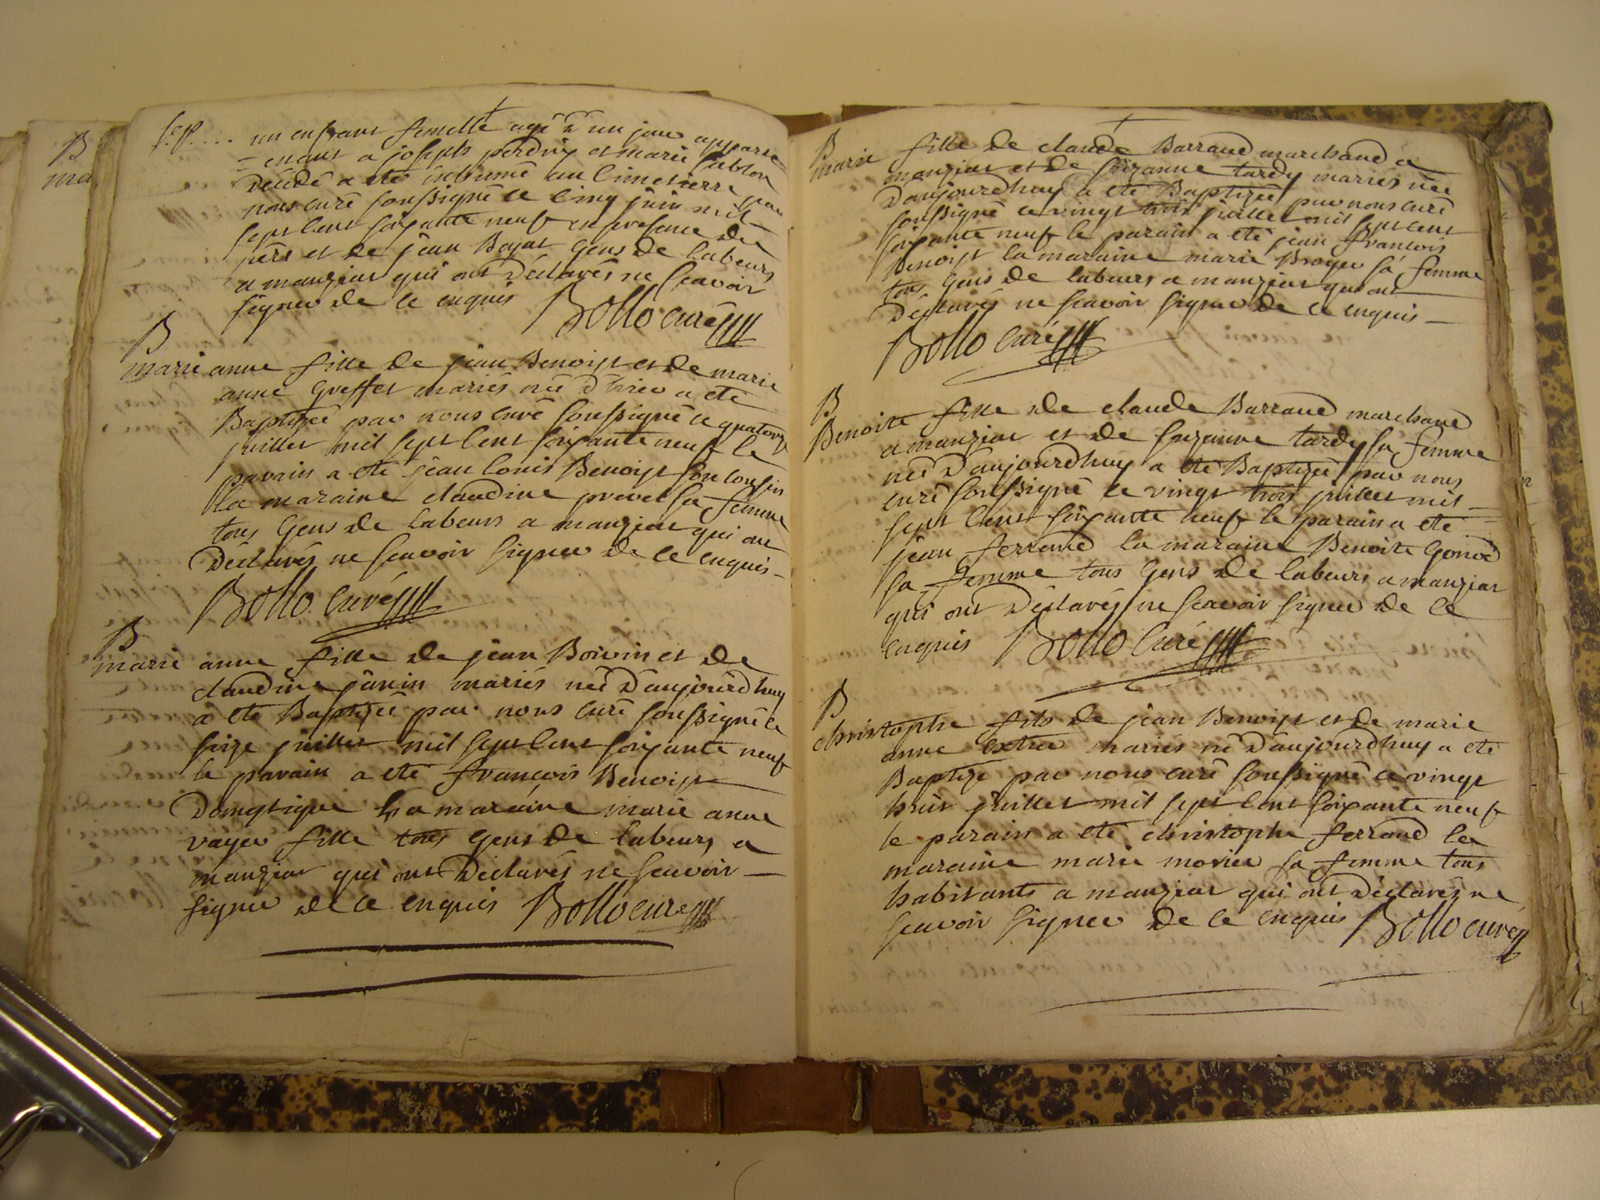 B
ma
Sep... un enfant femelle agé d'un jour apparte
=enant a joseph perdrix et marie Sublon
décédé a eté inhumé au Cimetierre par
nous curé soussigné le Cinq juin mil
sept Cent soixante neuf en presence du
père et de jean Boyat Gens de labeurs
a manziat qui ont déclarés ne scavoir
signer de ce enquis Bollo curé
B
marie anne fille de jean Benoist et de marie
anne Greffet mariés née d'hier a eté
Baptizée par nous curé soussigné le quatorze
juillet mil sept Cent soixante neuf le
parain a eté jean louis Benoist son Cousin
la maraine claudine prevel sa femme
tous Gens de labeurs a manziat qui ont
Déclarés ne scavoir signer de ce enquis_
Bollo Curé
B
marie anne fille de jean Boivin et de
claudine janin mariés née D'aujourdhuy
a eté Baptizée par nous curé soussigné le
seize juillet mil sept Cent soixante neuf
le parain a eté francois Benoist
Domestique La maraine marie anne
voyer fille tous Gens de labeurs a
manziat qui ont Déclarés ne scavoir_
signer de ce enquis Bollo curé
B
marie fille de claude Barraud marchand a
manziat et de suzanne tardy mariés née
D'aujourdhuy a eté Baptizée par nous curé
soussigné ce vingt trois juillet mil sept cent
soixante neuf le parain a eté jean francois
Benoist la maraine marie Broyer sa femme
tous Gens de labeurs a manziat qui ont
Déclarés ne scavoir signer de ce enquis_
Bollo Curé
B
Benoite fille de claude Barraud marchand
a manziat et de suzanne tardy sa femme
née D'aujourdhuy a eté Baptizée par nous
curé soussigné le vingt trois juillet mil_
sept Cent soixante neuf le parain a eté_
jean ferrand la maraine Benoite Gonod
sa femme tous Gens de labeurs a manziat
qui ont Déclarés ne scavoir signer de ce
enquis Bollo Curé
B
christophe fils de jean Benoist et de marie
anne mariés né D'aujourdhuy a eté
Baptizé par nous curé soussigné ce vingt
huit juillet mil sept Cent soixante neuf
le parain a eté christophe ferrand la
maraine marie morier sa femme tous
habitants a manziat qui ont Déclarés ne
scavoir signer de ce enquis Bollo curé